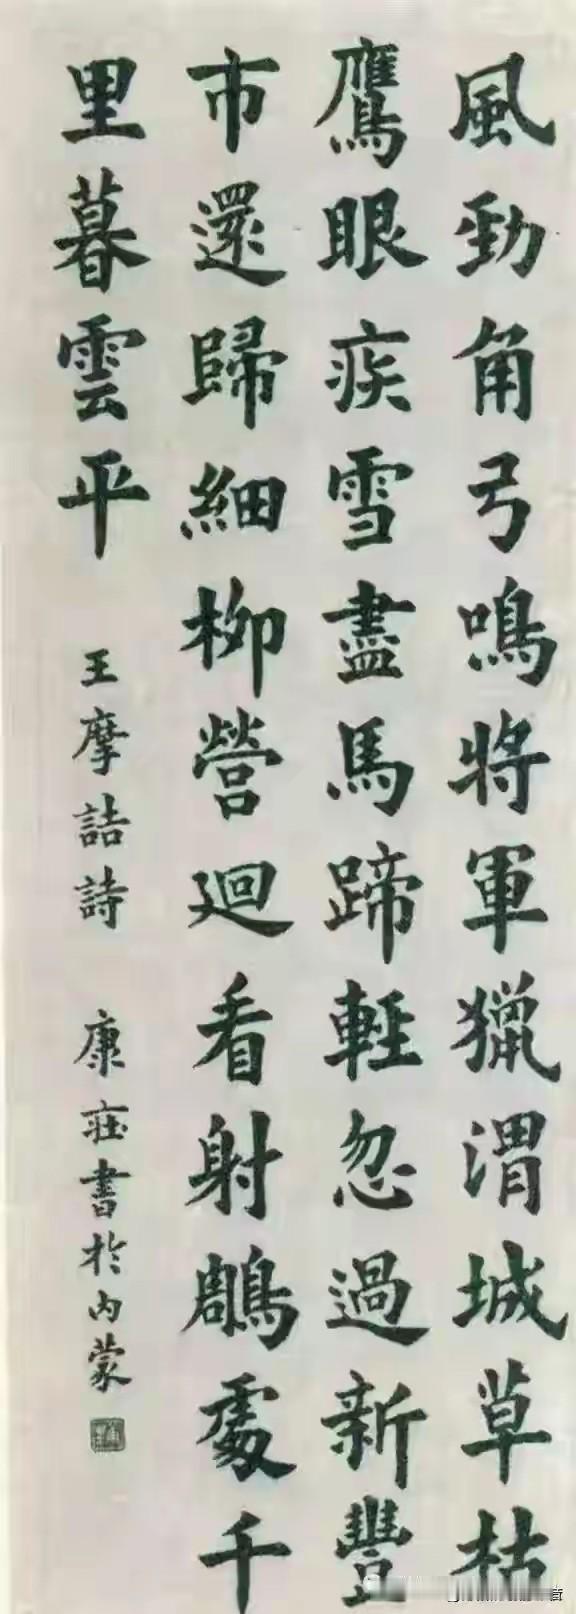 風勁角弓鳴將軍獵渭城草枯
鷹眼疾雪盡馬蹄輕忽過新豐
市還歸細柳營迴看射鵰處千
里暮雲平
王摩詰詩
康莊書於內蒙